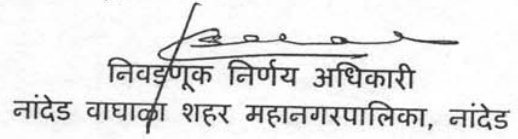 निवडणूक निर्णय अधिकारी
नांदेड वाघाळा शहर महानगरपालिका, नांदेड